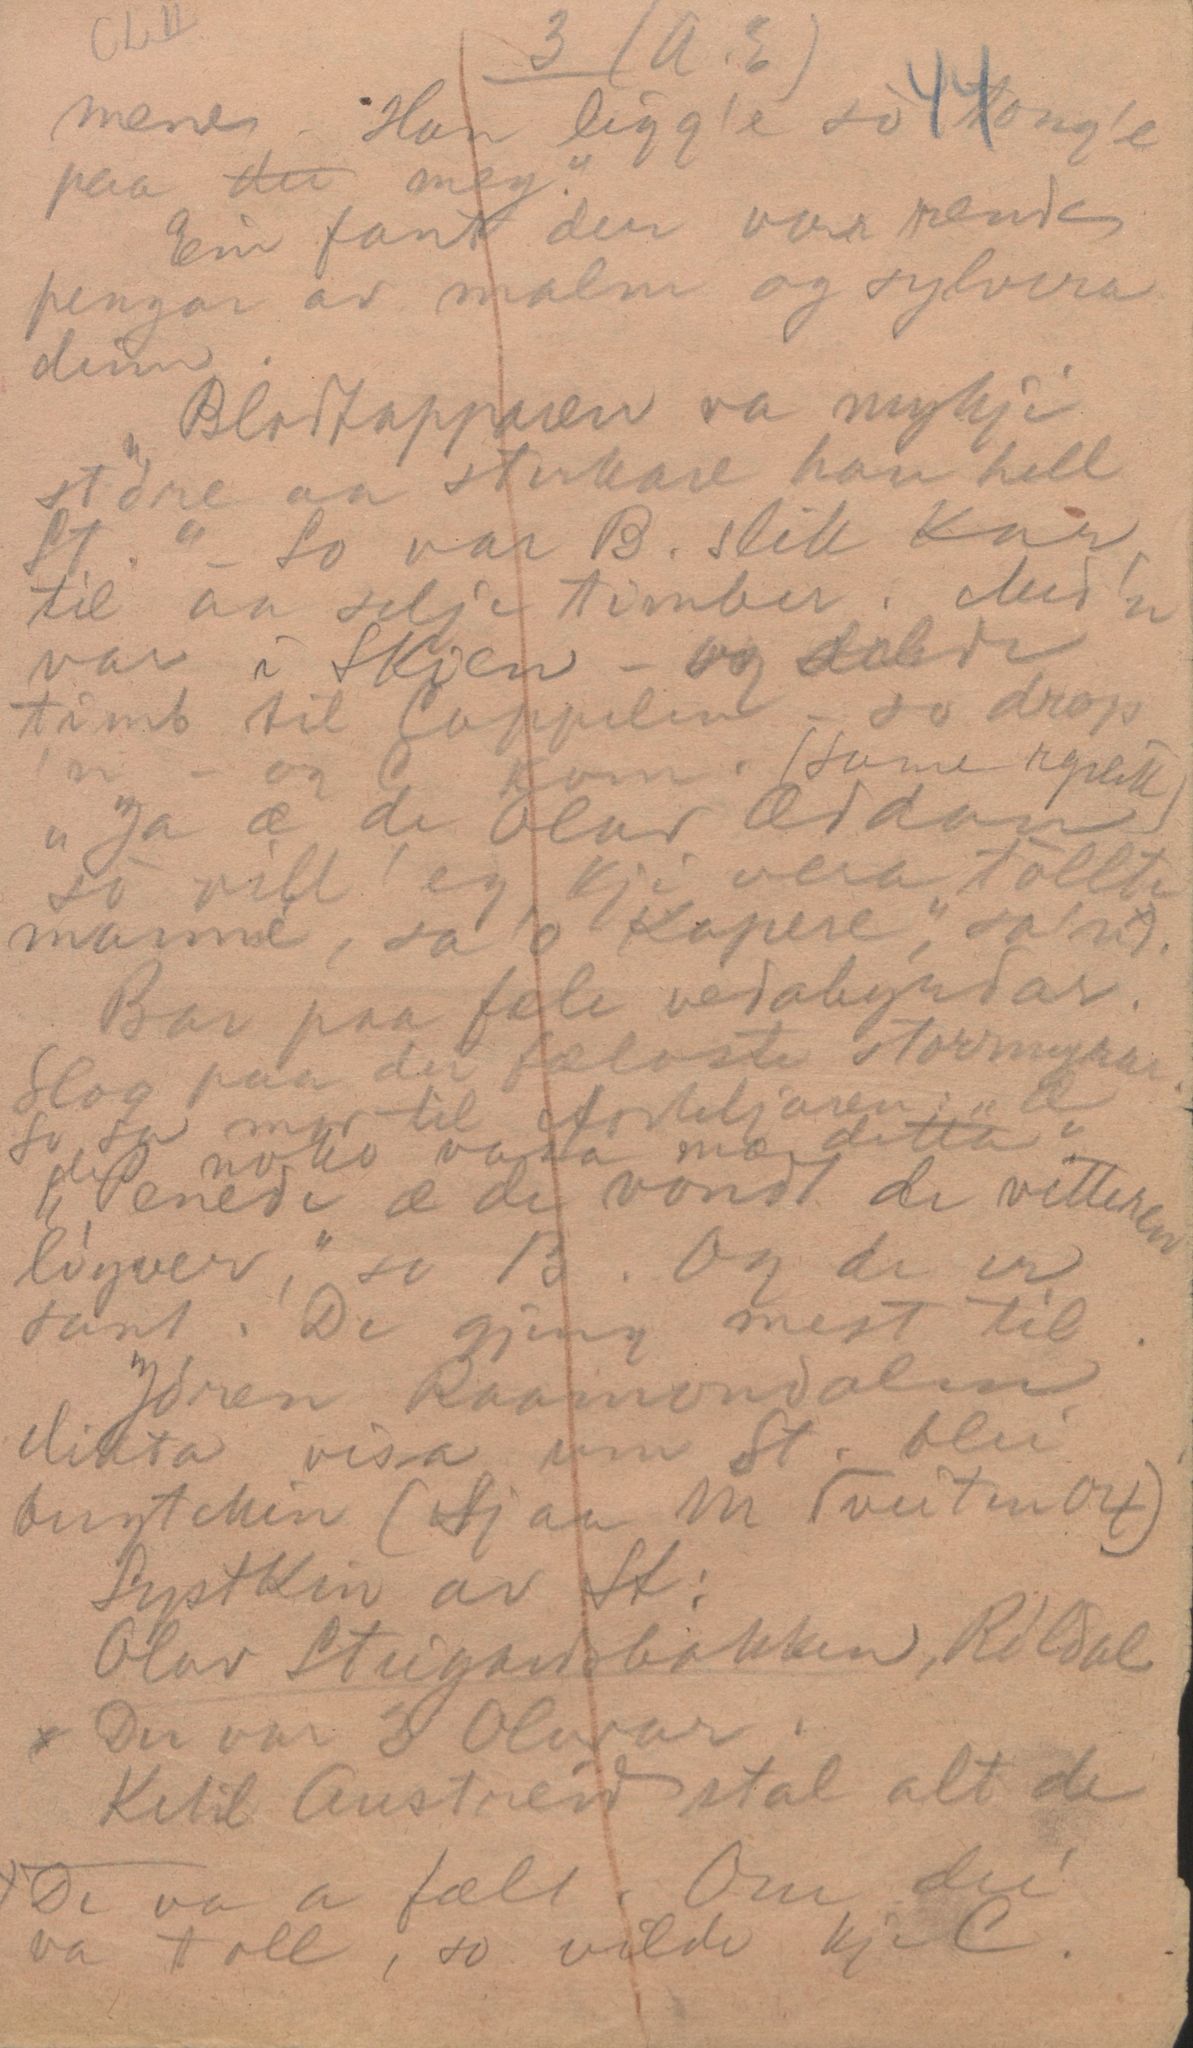 CLII
3 (A.E)
44
menes. Han ligg'e so tong'e
paa der meg."
Ein fant der var rende
pengar av malm og sylvera
deim.
"Blodtapparen va mykji
störe aa sterkare han hell
St." - So var B. slik kar
til aa selje timber. Med'n
var i Skien - og selde
timb til Cappelen - so drap
'n - og C kom. (same rgrett)
"Ja æ de Olav Æddan
so vill 'eg kji vera töllte
manne, sa'o Kapere," sa'n d.
Bar paa fæle vedabyrdar.
Slog paa dei fælaste stormyrar.
So sa mor til : "Æ
de noko vara mæ detta".
"Penede æ de vondt de vitteren
lögver," sa B. Og de er
sant. De gjeng mest til.
"Jören Raamundalen
dikta visa um St. blei
burtekin (Sjaa M Tveiten Ox)
Systkin av St:
Olav Steigardsbakken, Röldal
x Der var 3 Olavar.
Ketil Austreid stal alt de
x De va a fælt. Om dei
va toll, so vilde kje C.